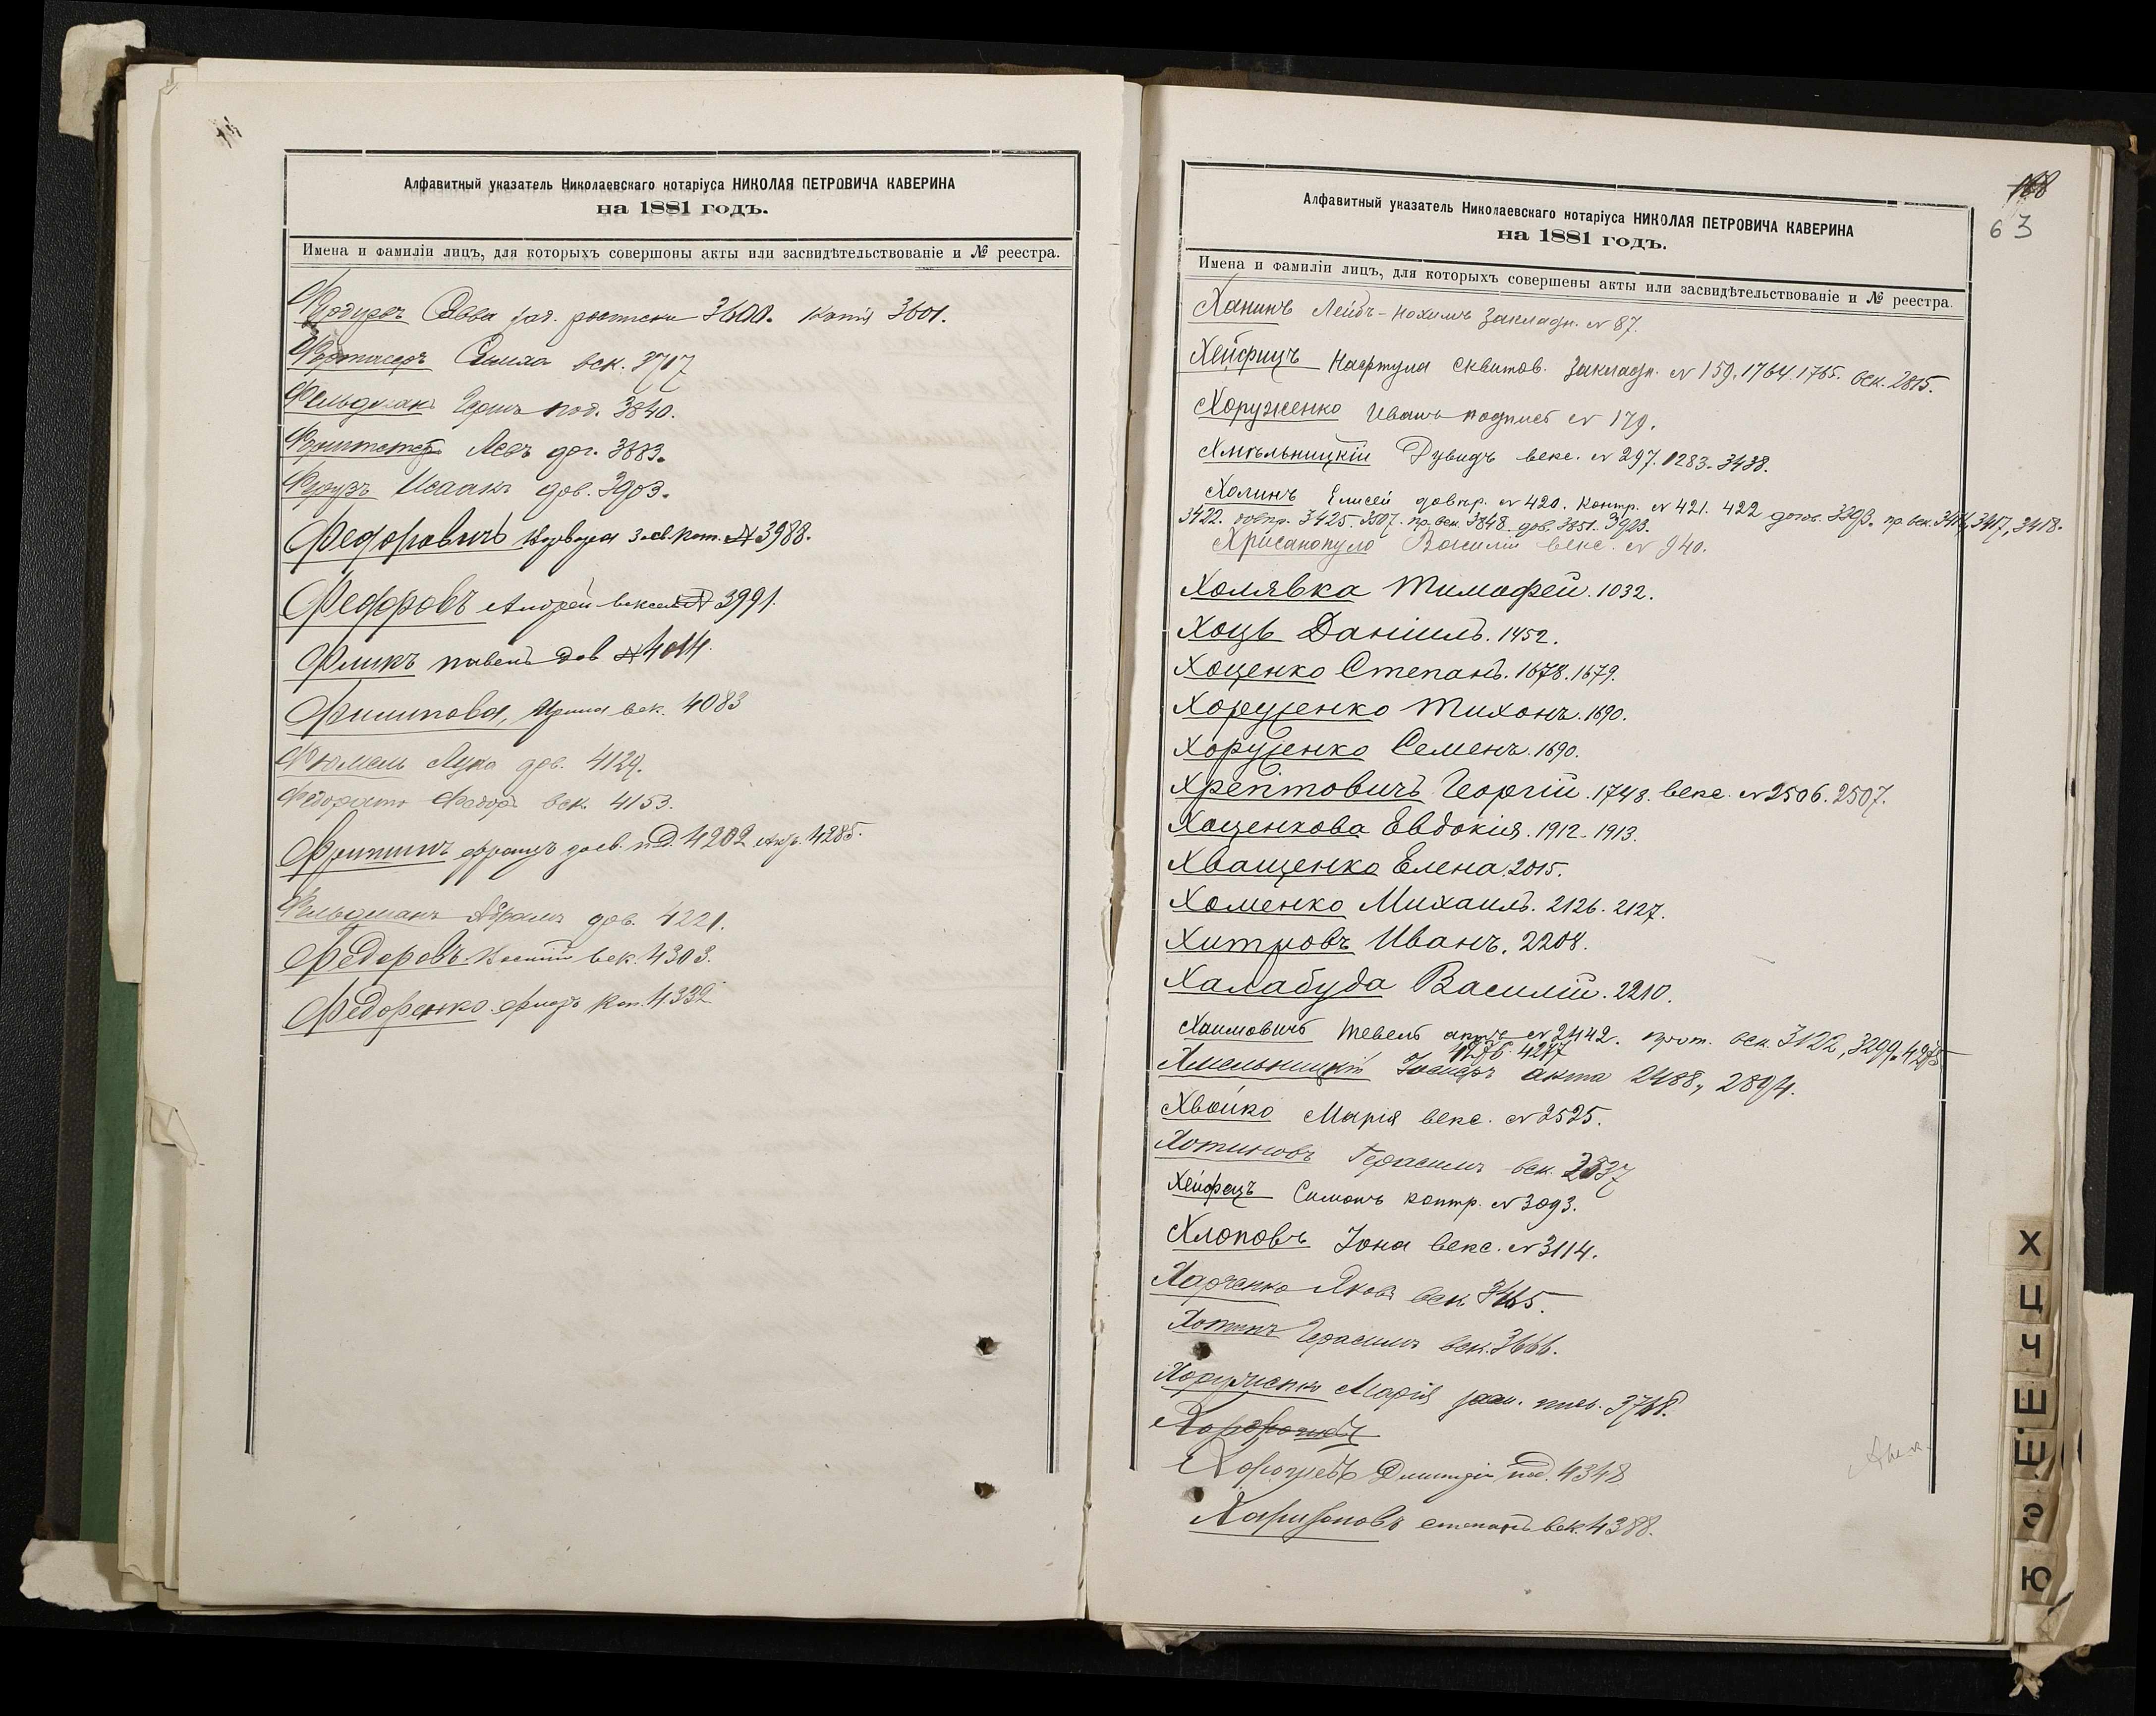 Алфавитный указатель Николаевскаго нотаріуса НИКОЛАЯ ПЕТРОВИЧА КАВЕРИНА
на 1881 годъ.
Имена и фамиліи лицъ, для которыхъ совершоны акты или засвидѣтельствованіе и № реестра.
Савва росписки 3600. Копія 3601.
век. 3717
под. 3840.
Левъ 3883.
Исаакъ дов. 3903.
Федоровичъ 3988.
Федоровъ Андрей 3991.
Фликъ дов № 4014.
Филипова, Ирина век. 4083
Фюмель Лука дов. 4129.
Федорато Федоръ век. 4153.
францъ 4202 4285.
Фельдманъ Абрамъ дов. 4221.
Федоровъ век. 4303.
Федоренко коп. 4332
168
63
Алфавитный указатель Николаевскаго нотаріуса НИКОЛАЯ ПЕТРОВИЧА КАВЕРИНА
на 1881 годъ.
Имена и фамиліи лицъ, для которыхъ совершены акты или засвидѣтельствованіе и № реестра.
Ханинъ Лейбъ-Нохимъ Закладн. № 87.
Хейфицъ Нафтула Закладн. № 159. 1764. 1765. век. 2815.
Хоруженко Иванъ подпись № 179.
Хмѣльницкій Дувидъ векс. № 297. 1283. 3438.
Холинъ Елисей № 420. Контр. № 421. 422
3422. 3425. 3507. 3848 дов. 3851.
Хрисанопуло Василій векс. № 940.
Холявка Тимофей. 1032.
Хоць Даніилъ. 1452.
Хоценко Степанъ. 1678. 1679.
Хорузенко Тихонъ. 1690.
Хорузенко Семенъ. 1690.
Хрептовичъ Георгій. 1748. векс. № 2506. 2507.
Хоценкова Евдокія. 1912. 1913.
Хващенко Елена. 2015.
Хоменко Михаилъ. 2126. 2127.
Хитровъ Иванъ. 2208.
Халабуда Василій. 2210.
Хаимовичъ Тевель актъ № 2442. век. 3122, 3299. 4275
4276. 4277
Хмельницкій Іосифъ акта 2488, 2894.
Хвойко Марія векс. № 2525.
Хотиновъ Герасимъ век. 2537
Хейфецъ Симонъ контр. № 3093.
Хлоповъ Іона векс. № 3114.
Харченко Яковъ век 3465.
Хотинъ Герасимъ век. 3666.
Хорунженко Марія 3768.
Дмитрій 4348
Харизоновъ степанъ век. 4388.
Х
Ц
Ч
Ш
Щ
Э
Ю